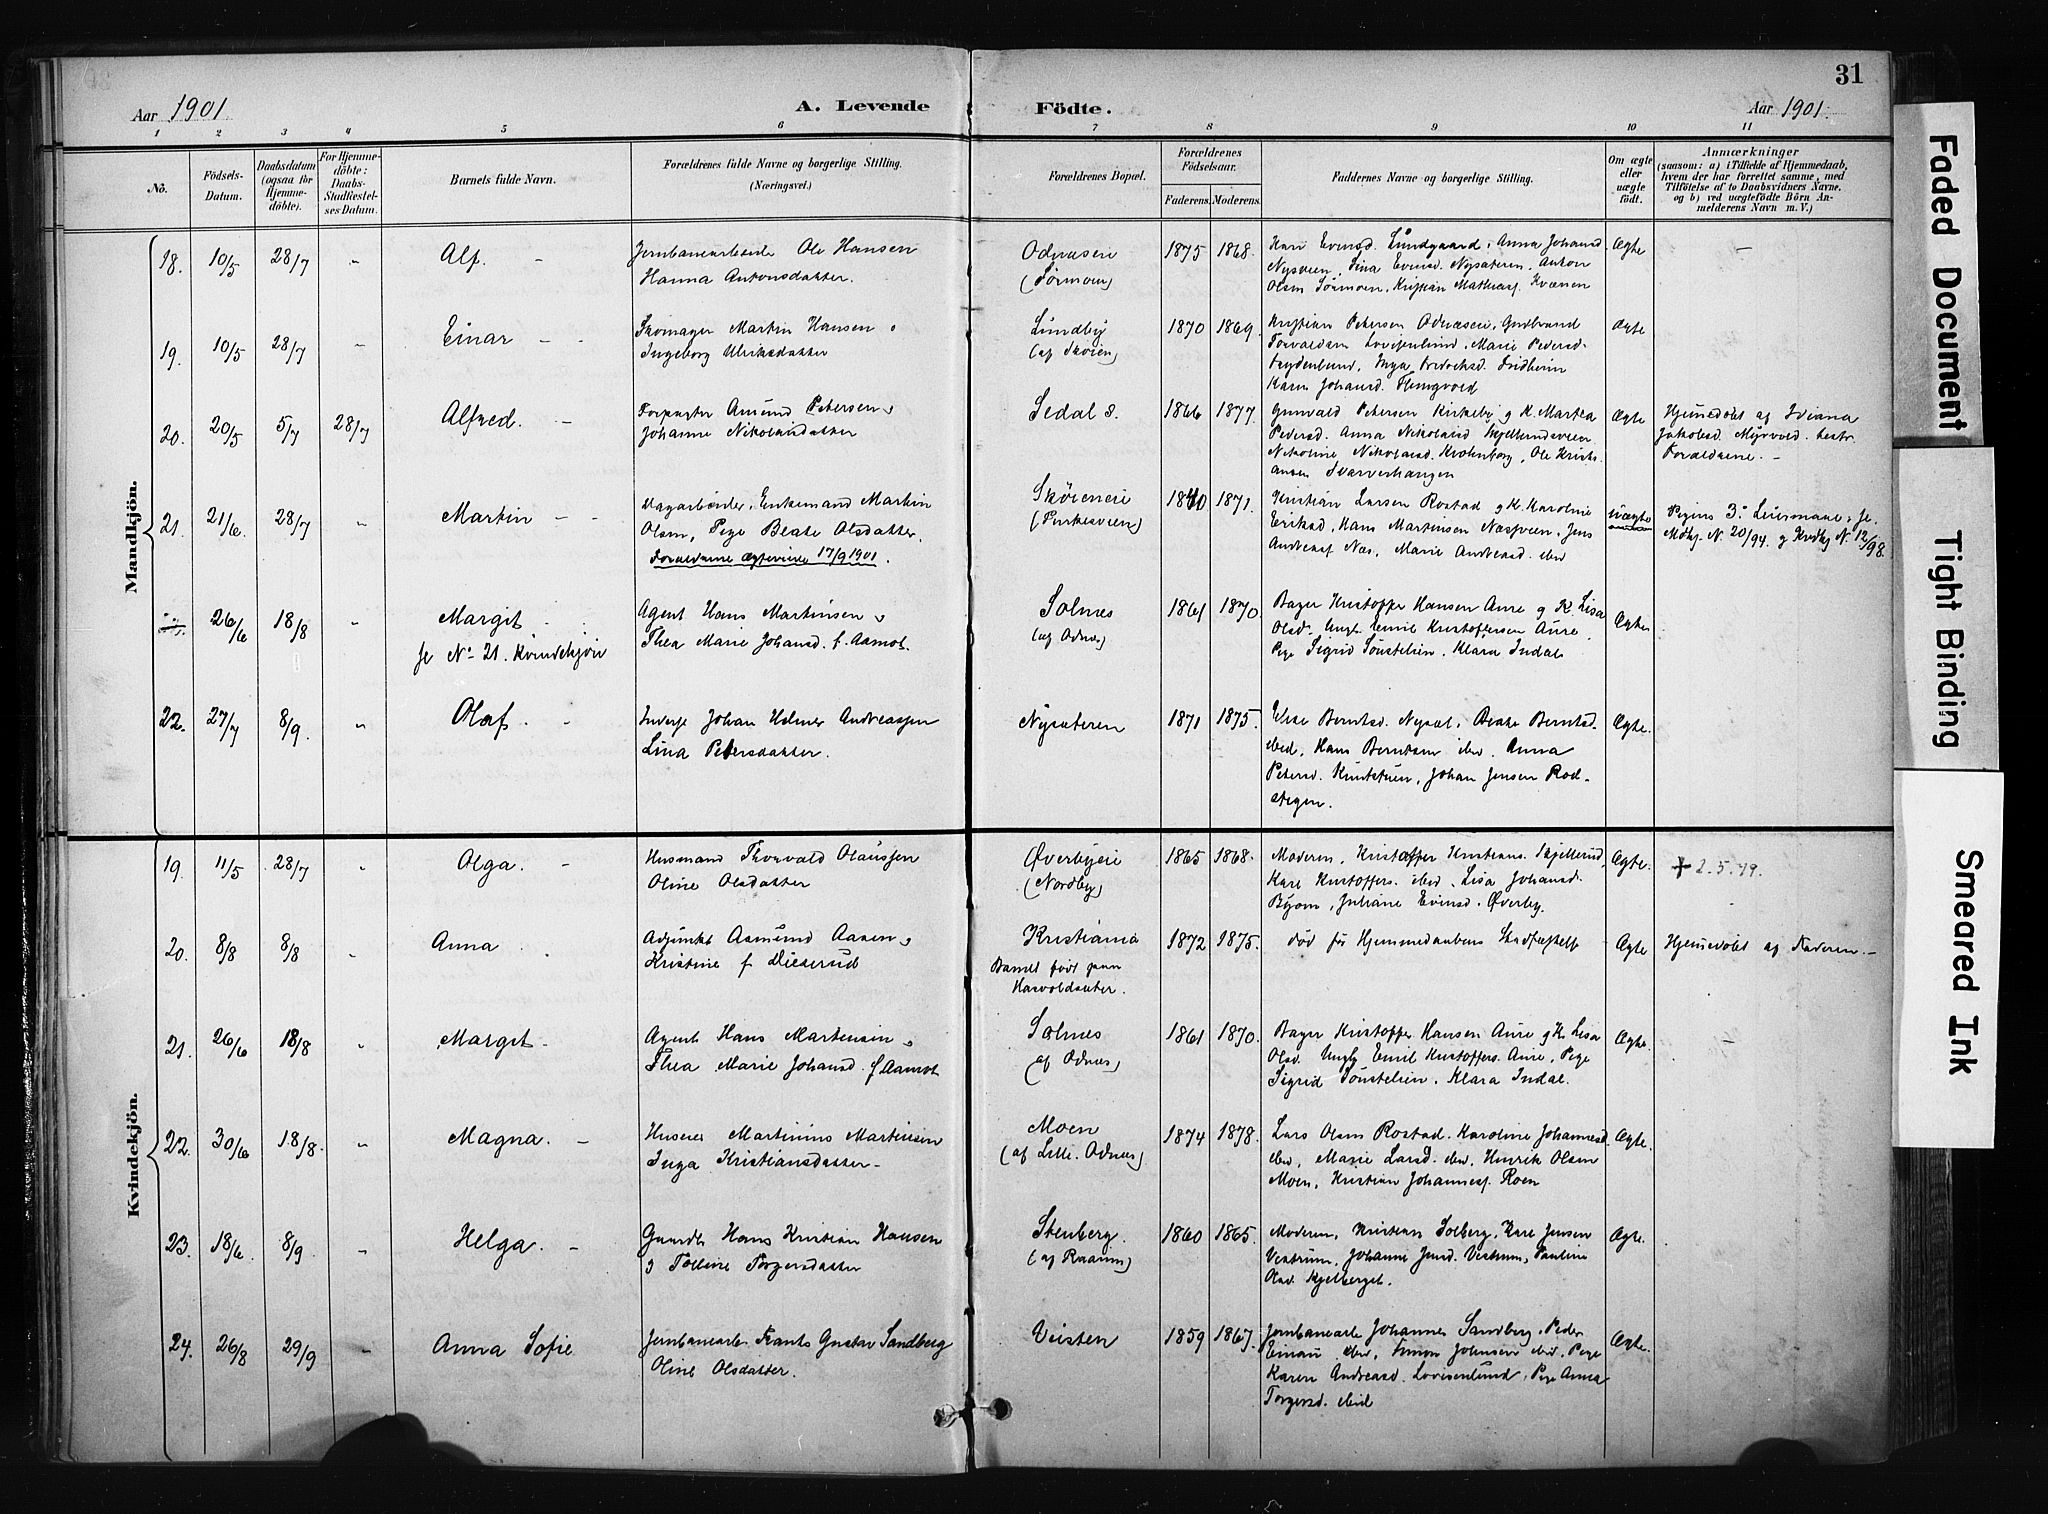 31
Aar 1901. A. Levende Födte. Aar 1901.
1 2 3 4 5 6 7 8 9 10 11
No.
Födsels-Datum.
Daabsdatum (ogsaa for Hjemme-döbte).
For Hjemme-döbte: Daabs-Stadfæstel-ses Datum.
Barnets fulde Navn.
Forældrenes fulde Navne og borgerlige Stilling. (Næringsvei.)
Forældrenes Bopæl.
Forældrenes Födselsaar.
Faderens. Moderens.
Faddernes Navne og borgerlige Stilling.
Om ægte eller uægte födt.
Anmærkninger
(saasom: a) i Tilfælde af Hjemmedaab,
hvem der har forrettet samme, med
Tilföielse af to Daabsvidners Navne.
og b) ved uægtefödte Börn An-
melderens Navn m. V.)
Mandkjön.
18. 10/5 28/7 " Alf. -
Jernbanearbeide Ole Hansen
Hanna Antonsdatter.
Odnæseie
(Sörmoen)
1875 1868.
Kari Evensd. Lundgaard, Anna Johansd
Nysveen, Lina Evensd. Nysæteren, Anton
Olsen Sörmoen, Kristian Mathiass. Kvænen
Ægte -
19. 10/5 28/7 " Einar - -
Skomager Martin Hansen o
Ingeborg Ulriksdatter
Lundby
(af Skoien)
1870 1869.
Kristian Petersen Odnæseie, Gudbrand
Torvaldsen Lovisenlund, Marie Pedersd.
Inga Fredriksd. Fridheim
Karen Johansd. Flengvold
Ægte
20. 20/5 5/7 28/7 Alfred. -
Forpagter Amund Petersen o
Johanne Nikolaisdatter
Sedal s.
1866 1877.
Gunvald Petersen Kirkeby g K. Martea
Pedersd. Anna Nikolaisd Kjellerudsveen
Nikoline Nikolaisd. Krohnborg, Ole Kristi-
ansen Svarverhaugen
Ægte
Hjemmedöbt af
Jakobsd. Myrvold. bestr.
Forældrene. -
21. 21/6. 28/7 " Martin - -
Dagarbeider, Enkemand Martin
Olsen, Pige Beate Olsdatter.
Forældrene ægteviede 17/9 1901.
Sköieneie
(Pukesveen)
1840 1871.
Kristian Larsen Rostad g K. Karoline
Eriksd, Hans Martinsen Næsveen, Jens
Andreass Næs, Marie Andreasd. ibid
uægte
Pigens 3. Leiermaal, se
Mdkj. N. 20/94. g Kvdkj N. 12/98.
26/6 18/8 " Margit -
se No 21. Kvindekjön
Agent Hans Martinsen o
Thea Marie Johansd. f. Aamot.
Solnes
(af Odnes)
1861 1870.
Bager Kristoffer Hansen Aure g K Lisa
Olsd. Ungk. Emil Kristoffersen Aure,
Pige Sigrid Tönstelien, Klara Indal
Ægte
22. 27/7 8/9. " Olaf -
Inderst Johan Helmer Andreassen
Lina Petersdatter.
Nysæteren
1871 1875.
Else Berntsd. Nysæt, Beate Berntsd.
ibid, Hans Berntsen ibid. Anna
Petersd. Kunstuen, Johan Jensen Röd-
stegen.
Ægte.
Kvindekjön.
19. 11/5 28/7 " Olga. -
Husmand Thorvald Olaussen
Oline Olsdatter
Överbyeie
(Nordby)
1865 1868.
Moderen, Kristoffer Kristians. Skjellerud,
Kari Kristoffers. ibid, Lisa Johansd.
Byom, Juliane Evensd. Överby.
Ægte. + 2.5.79.
20. 8/8 8/8 " Anna .
Adjunkt Aamund Aasen o
Kristine f. Dieserud
Kristiania
Barnet født paa
Hasvoldsæter.
1872 1875.
død før Hjemmedaabens Stadfæstelse
Ægte Hjemmedöbt af Faderen. -
21. 26/6 18/8 " Margit -
Agent Hans Martinsen o
Thea Marie Johansd. f Aamot
Solnes
(af Odnes)
1861 1870.
Bager Kristoffer Hansen Aure g K Lisa
Olsd. Ungk Emil Kristoffers. Aure, Pige
Sigrid Tönstelien, Klara Indal.
Ægte. -
22. 30/6 18/8. " Magna. -
Huseier Martinius Martinsen
Inga Kristiansdatter -
Moen
(af Lille. Odnes)
1874 1878.
Lars Olsen Rostad. Karoline Johannesd.
ibid, Marie Larsd. ibid, Henrik Olsen
Moen, Kristian Johanness. Roen
Ægte.
23. 18/6. 8/9 " Helga. -
Gaardbr Hans Kristian Hansen
g Tolline Torgersdatter
Stenberg.
(af Raarum)
1860 1865.
Moderen, Kristian Solberg, Kari Jensen
Vestrum, Johanne Jensd. Vestrum, Pauline
Olsd. Kjelberget.
Ægte.
24. 26/8 29/9 " Anna Sofie
Jernbanearb. Frants Gustav Sandberg
Oline Olsdatter.
Veisten
1859 1867.
Jernbanearb Johannes Sandberg, Peder
Einau ibid, Simon Johnsen ibid, Pige
Karen Andreasd. Lovisenlund, Pige Anna
Torgersd. ibid
Ægte.
Faded Document
Tight Binding
Smeared Ink